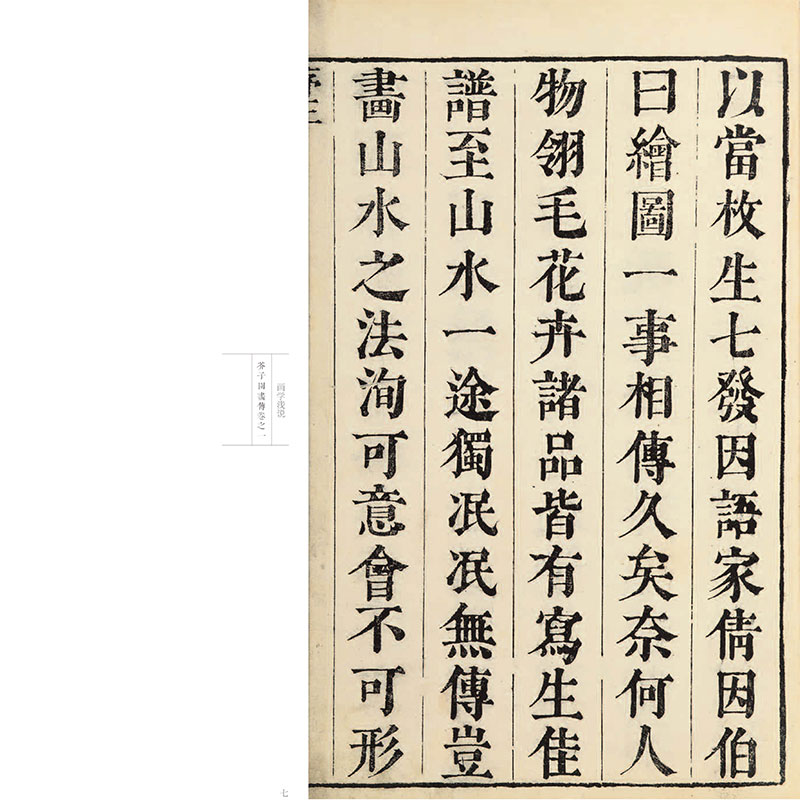 以當枚生七發因語家倩因伯
曰繪圖一事相傳久矣奈何人
物翎毛花卉諸品皆有寫生佳
譜至山水一途獨泯泯無傳豈
畫山水之法洵可意會不可形
序三
画学浅说
芥子園畫傳卷之一
七